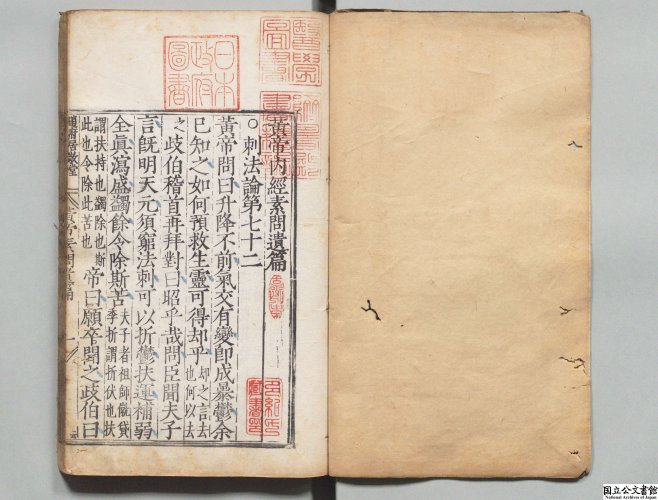 黃帝內經素問遺篇
○刺法論第七十二
黃帝問曰升降不前氣交有變即成暴鬱余
已知之如何預救生靈可得却乎却之言去也何以去
之歧伯稽首再拜對曰昭乎哉問臣聞夫子
言旣明天元須窮法刺可以折鬱扶運補弱
全眞瀉盛蠲餘令除斯苦夫子者祖師僦貸季折謂折伏也扶
謂扶持也蠲除也斯此也令除此苦也帝曰願卒聞之歧伯曰
日本
政府
圖書
国立公文書館
National Archives of Japan